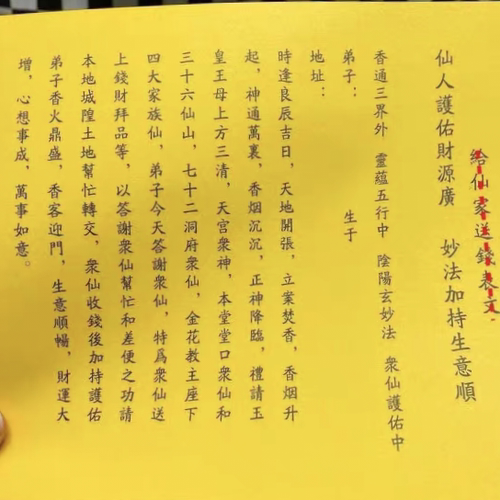 給仙家送錢表文
仙人護佑財源廣 妙法加持生意順
香通三界外 靈蘊五行中 陰陽玄妙法 衆仙護佑中
弟子： 生于
地址：
時逢良辰吉日，天地開張，立案焚香，香烟升
起，神通萬裏，香烟沉沉，正神降臨，禮請玉
皇王母上方三清，天宫衆神，本堂堂口衆仙和
三十六仙山，七十二洞府衆仙，金花教主座下
四大家族仙，弟子今天答謝衆仙，特爲衆仙送
上錢財拜品等，以答謝衆仙幫忙和差便之功請
本地城隍土地幫忙轉交，衆仙收錢後加持護佑
弟子香火鼎盛，香客迎門，生意順暢，財運大
增，心想事成，萬事如意。